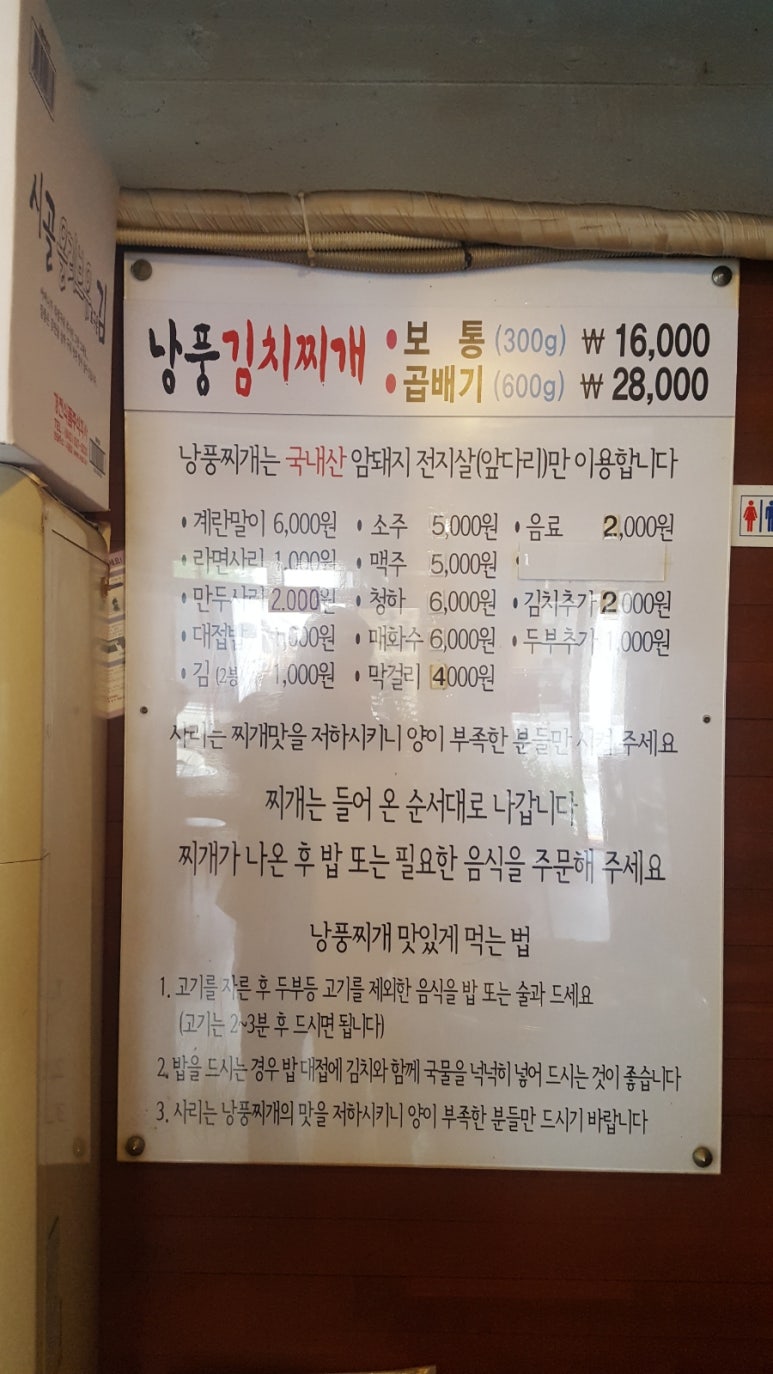 시골
김
낭풍김치찌개 : 보 통 (300g) ₩ 16,000
곱배기 (600g) ₩ 28,000
낭풍찌개는 국내산 암돼지 전지살(앞다리)만 이용합니다
• 계란말이 6,000원 • 소주 5,000원 • 음료 2,000원
• 라면사리 1,000원 • 맥주 5,000원 •
• 만두사리 2.000원 • 청하 6,000원 • 김치추가 2000원
• 대접밥 • 매화수 6,000원 • 두부추가 1,000원
• 김 (2봉 1,000원 • 막걸리 4000원
사리는 찌개맛을 저하시키니 양이 부족한 분들만 시켜 주세요
찌개는 들어 온 순서대로 나갑니다
찌개가 나온 후 밥 또는 필요한 음식을 주문해 주세요
낭풍찌개 맛있게 먹는 법
1. 고기를 자른 후 두부등 고기를 제외한 음식을 밥 또는 술과 드세요
(고기는 2~3분 후 드시면 됩니다)
2. 밥을 드시는 경우 밥 대접에 김치와 함께 국물을 넉넉히 넣어 드시는 것이 좋습니다
3. 사리는 낭풍찌개의 맛을 저하시키니 양이 부족한 분들만 드시기 바랍니다